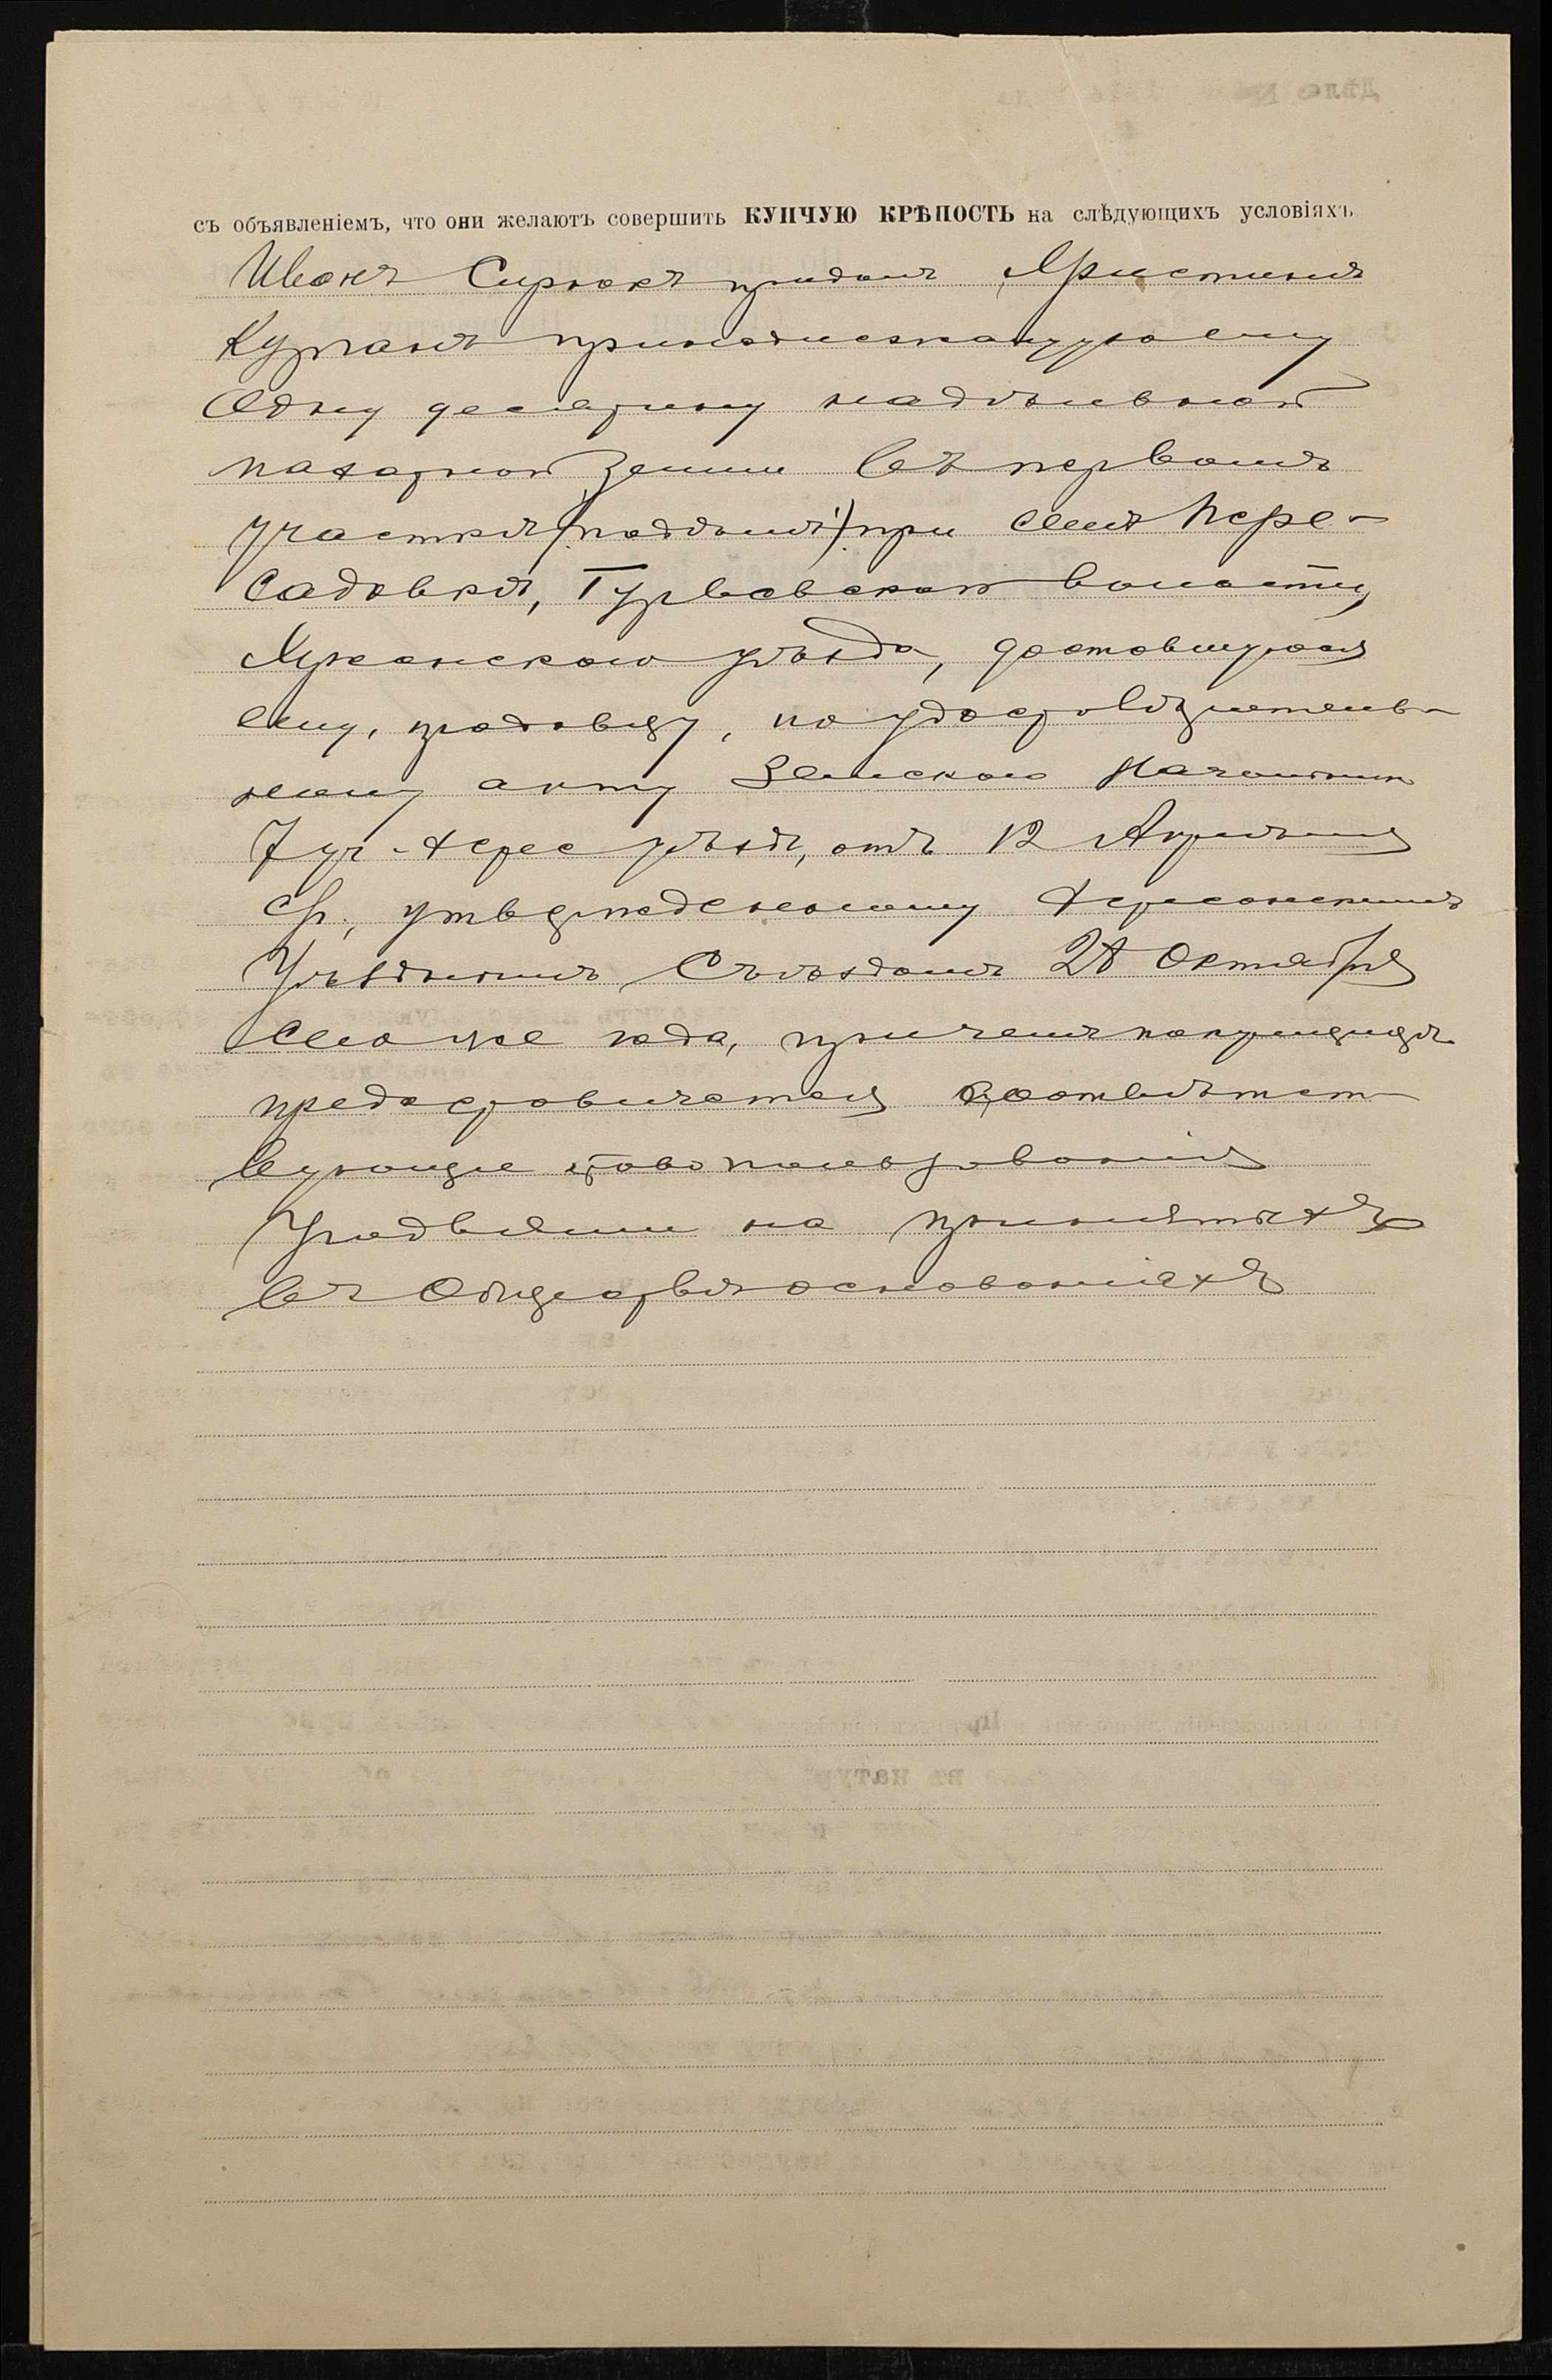 съ объявленіемъ, что они желаютъ совершить КУПЧУЮ КРѢПОСТЬ на слѣдующихъ условіяхъ
Иванъ Сирюкъ продалъ Христинѣ
Курганъ принадлежащую ему
Одну десятину надѣльной
пахатной земли въ первомъ
участкѣ при селѣ Пере-
садовкѣ, Гурьевской волости,
Херсонскаго уѣзда, доставшуюся
ему, продавцу, по удостовѣритель-
ному акту Земскаго Начальника
7 уч. Херс. уѣзда, отъ 12 Апрѣля
с/г., утвержденному Херсонскимъ
Уѣзднымъ Съѣздомъ 28 Октября
сего же года, причемъ покупщицѣ
предоставляется соотвѣтст-
вующее право пользованія
угодьями на принятыхъ
въ обществѣ основаніяхъ